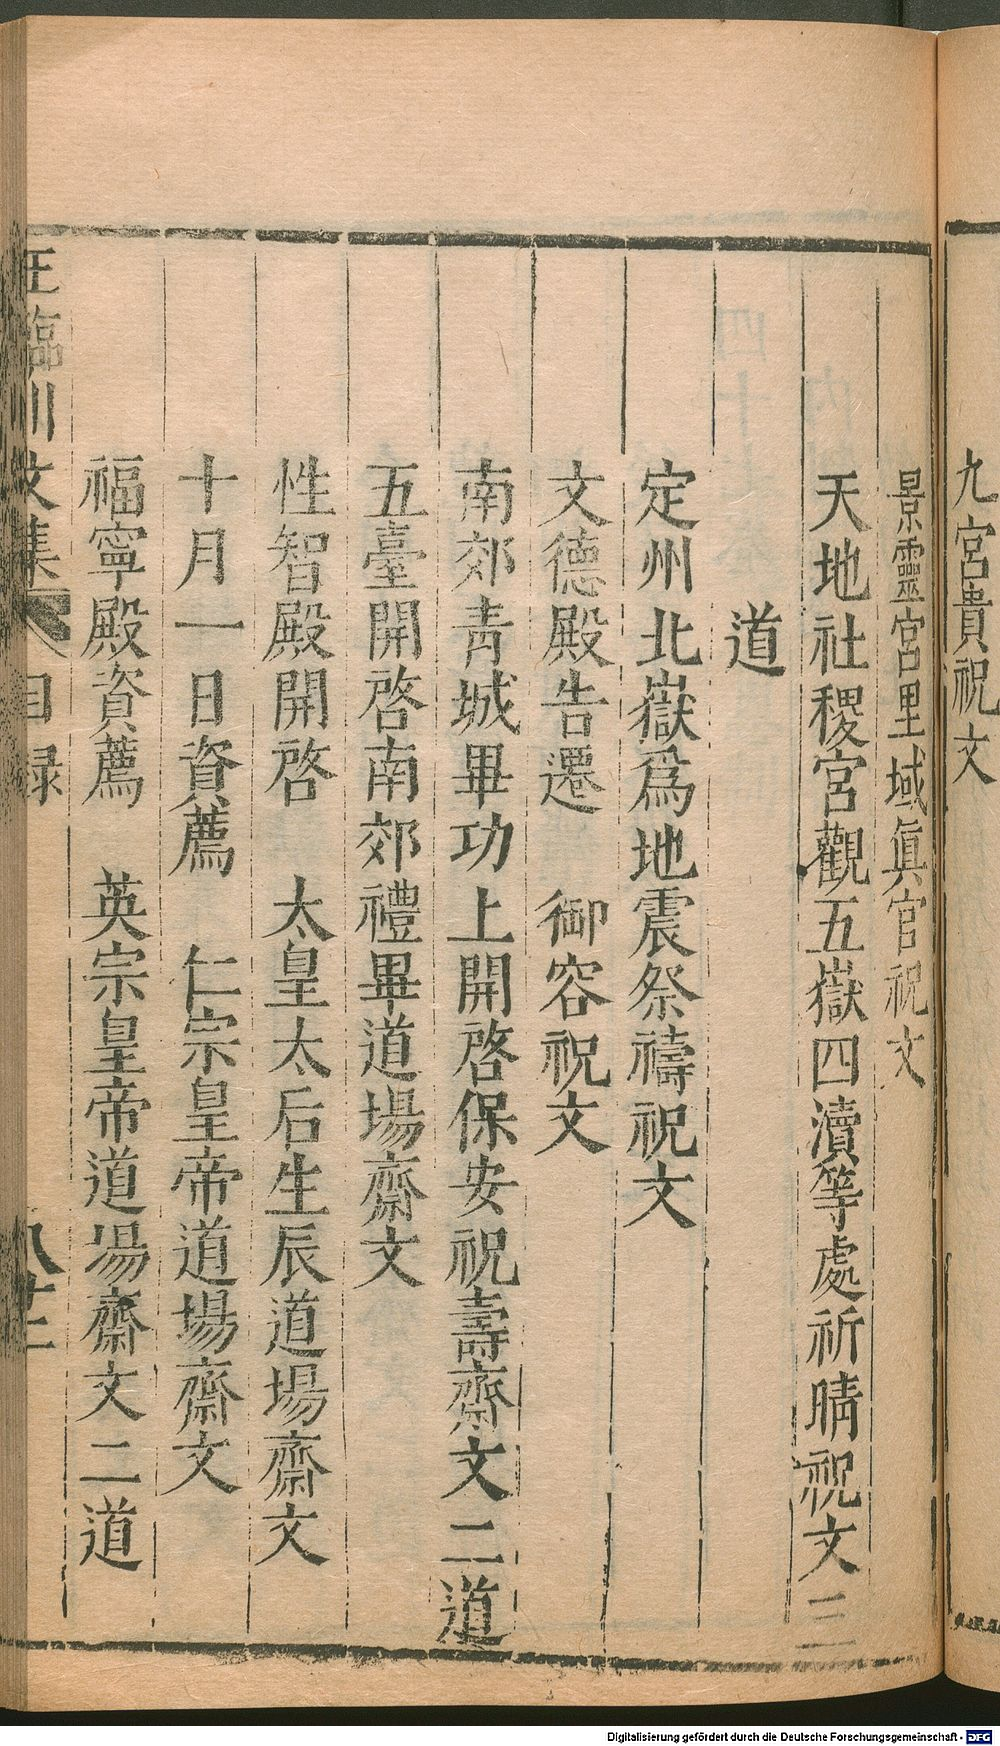 九宮貴祝文
景靈宮里域眞官祝文
天地社稷宮觀五嶽四瀆等處祈晴祝文三
道
定州北嶽爲地震祭禱祝文
文德殿告遷　御容祝文
南郊青城畢功上開啓保安祝壽齋文二道
五臺開啓南郊禮畢道場齋文
性智殿開啓　太皇太后生辰道場齋文
十月一日資薦　仁宗皇帝道場齋文
福寧殿資薦　英宗皇帝道場齋文二道
王臨川文集　目録
Digitalisierung gefördert durch die Deutsche Forschungsgemeinschaft - DFG